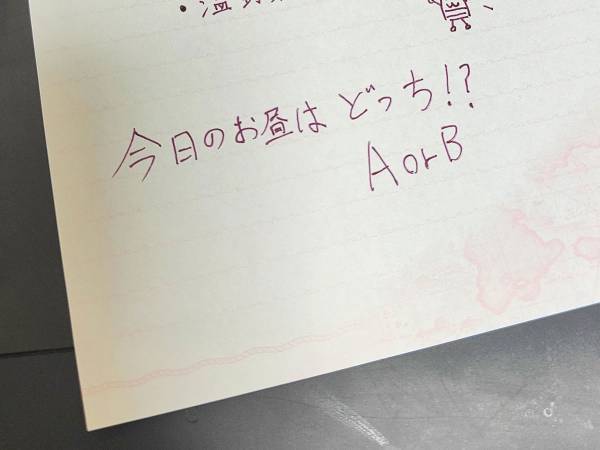 今日のお昼は どっち!?
A or B